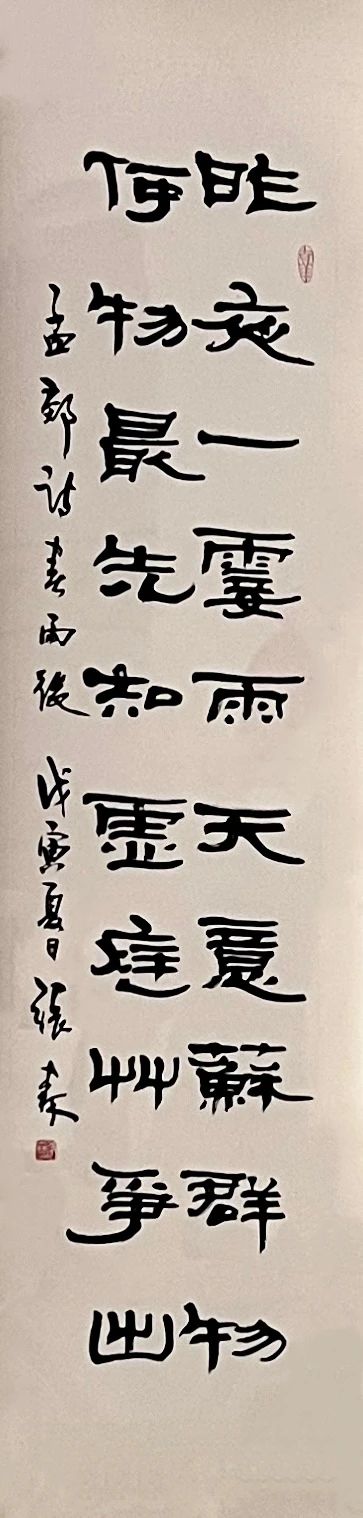 昨夜一霎雨天意蘇群物
何物最先知虛庭艸爭出
孟郊詩春雨後 戊寅夏日 張泰